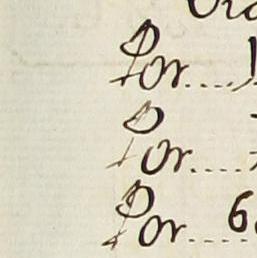 Por....
Por....
Por.... 6